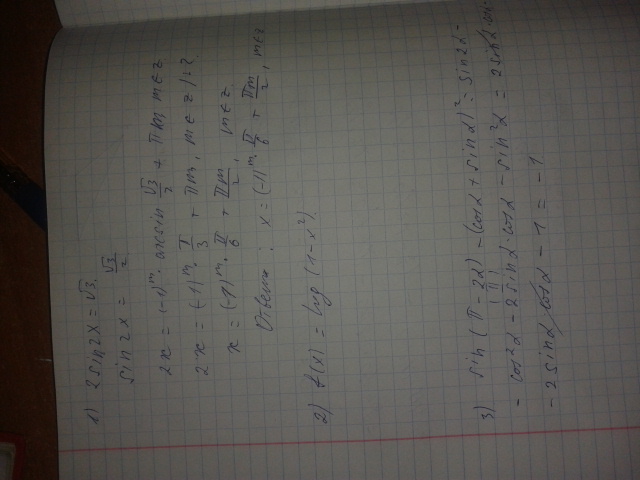 1) 2sin2x = √3.
sin2x = √3/2
2x = (-1)^m · arcsin √3/2 + πm, m∈z
2x = (-1)^m · π/3 + πm, m∈z /:2
x = (-1)^m · π/6 + πm/2, m∈z
Ответ: x = (-1)^m · π/6 + πm/2, m∈z
2) f(x) = log (1-x²)
3) sin(π-2α) - (cosα + sinα)² = sin2α -
- cos²α - 2sinα·cosα - sin²α = 2sinα·cos
- 2sinα cosα - 1 = -1